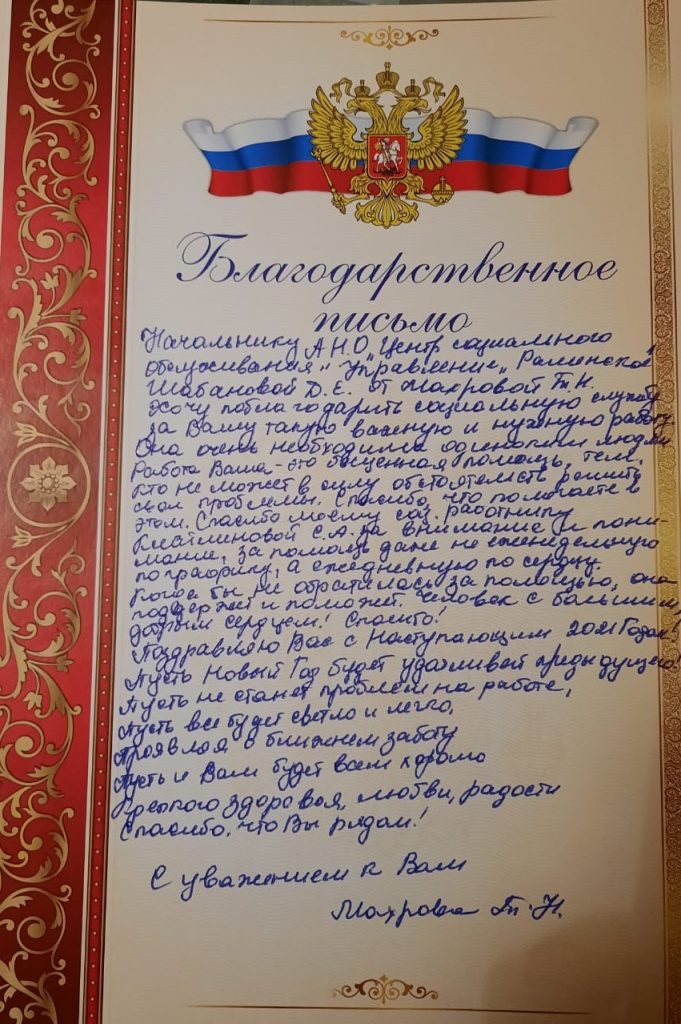 Благодарственное
письмо
Начальнику А.Н.О. „Центр социального
обслуживания" „Управление„ Раменское"
Шабановой Д.Е. от Махровой Т.Н.
Хочу поблагодарить социальную службу
за Вашу такую важную и нужную работу.
Она очень необходима одиноким людям
Работа Ваша - это бесценная помощь, тем,
кто не может в силу обстоятельств решить
свои проблемы. Спасибо, что помогаете в
этом. Спасибо моему соц. работнику
С.А. за внимание и пони-
мание, за помощь даже не еженедельную
по графику, а ежедневную по сердцу.
Когда бы не обратилась за помощью, она
поддержит и поможет. Человек с большим,
добрым сердцем! Спасибо!
Поздравляю Вас с Наступающим 2021 Годом!
Пусть Новый Год будет удачливей предыдущего!
Пусть не станет проблем на работе,
Пусть все будет светло и легко,
Проявляя о ближнем заботу
Пусть и Вам будет всем хорошо
Крепкого здоровья, любви, радости
Спасибо, что Вы рядом!
С уважением к Вам
Махрова Т.Н.